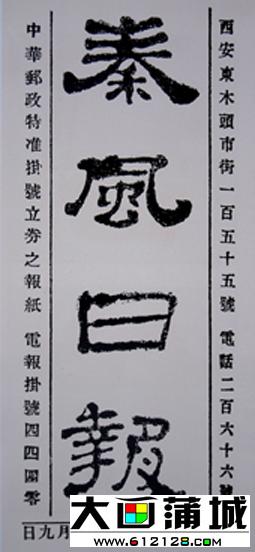 西安東木頭市街一百五十五號 電話二百六十六號
秦風日報
中華郵政特准掛號立券之報紙 電報掛號四四四零
月九日
大画蒲城
www.612128.com